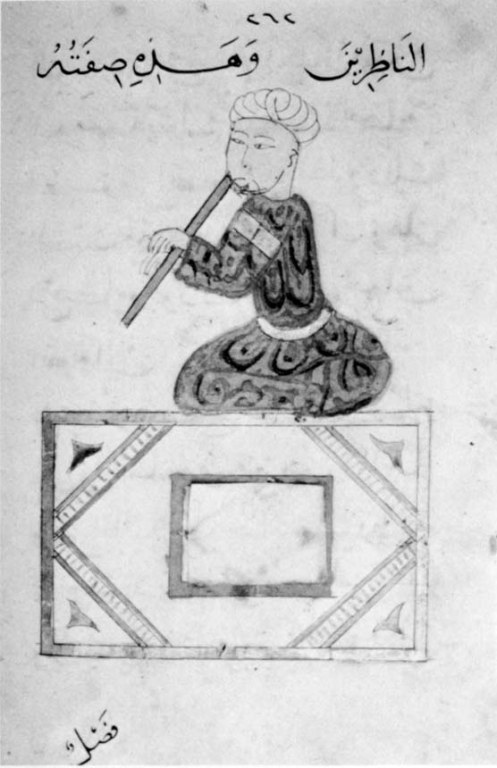 ٢٦٢
النَاظِرِيْنَ وَهَذِهِ صِفَتُهُ
فَصْلٌ